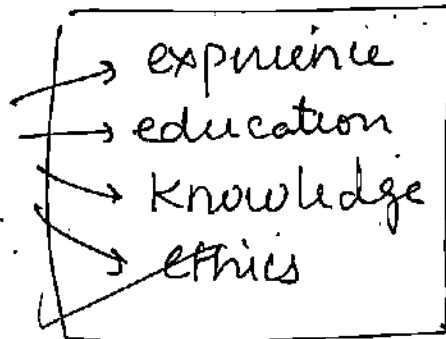 experience
education
Knowledge
ethics